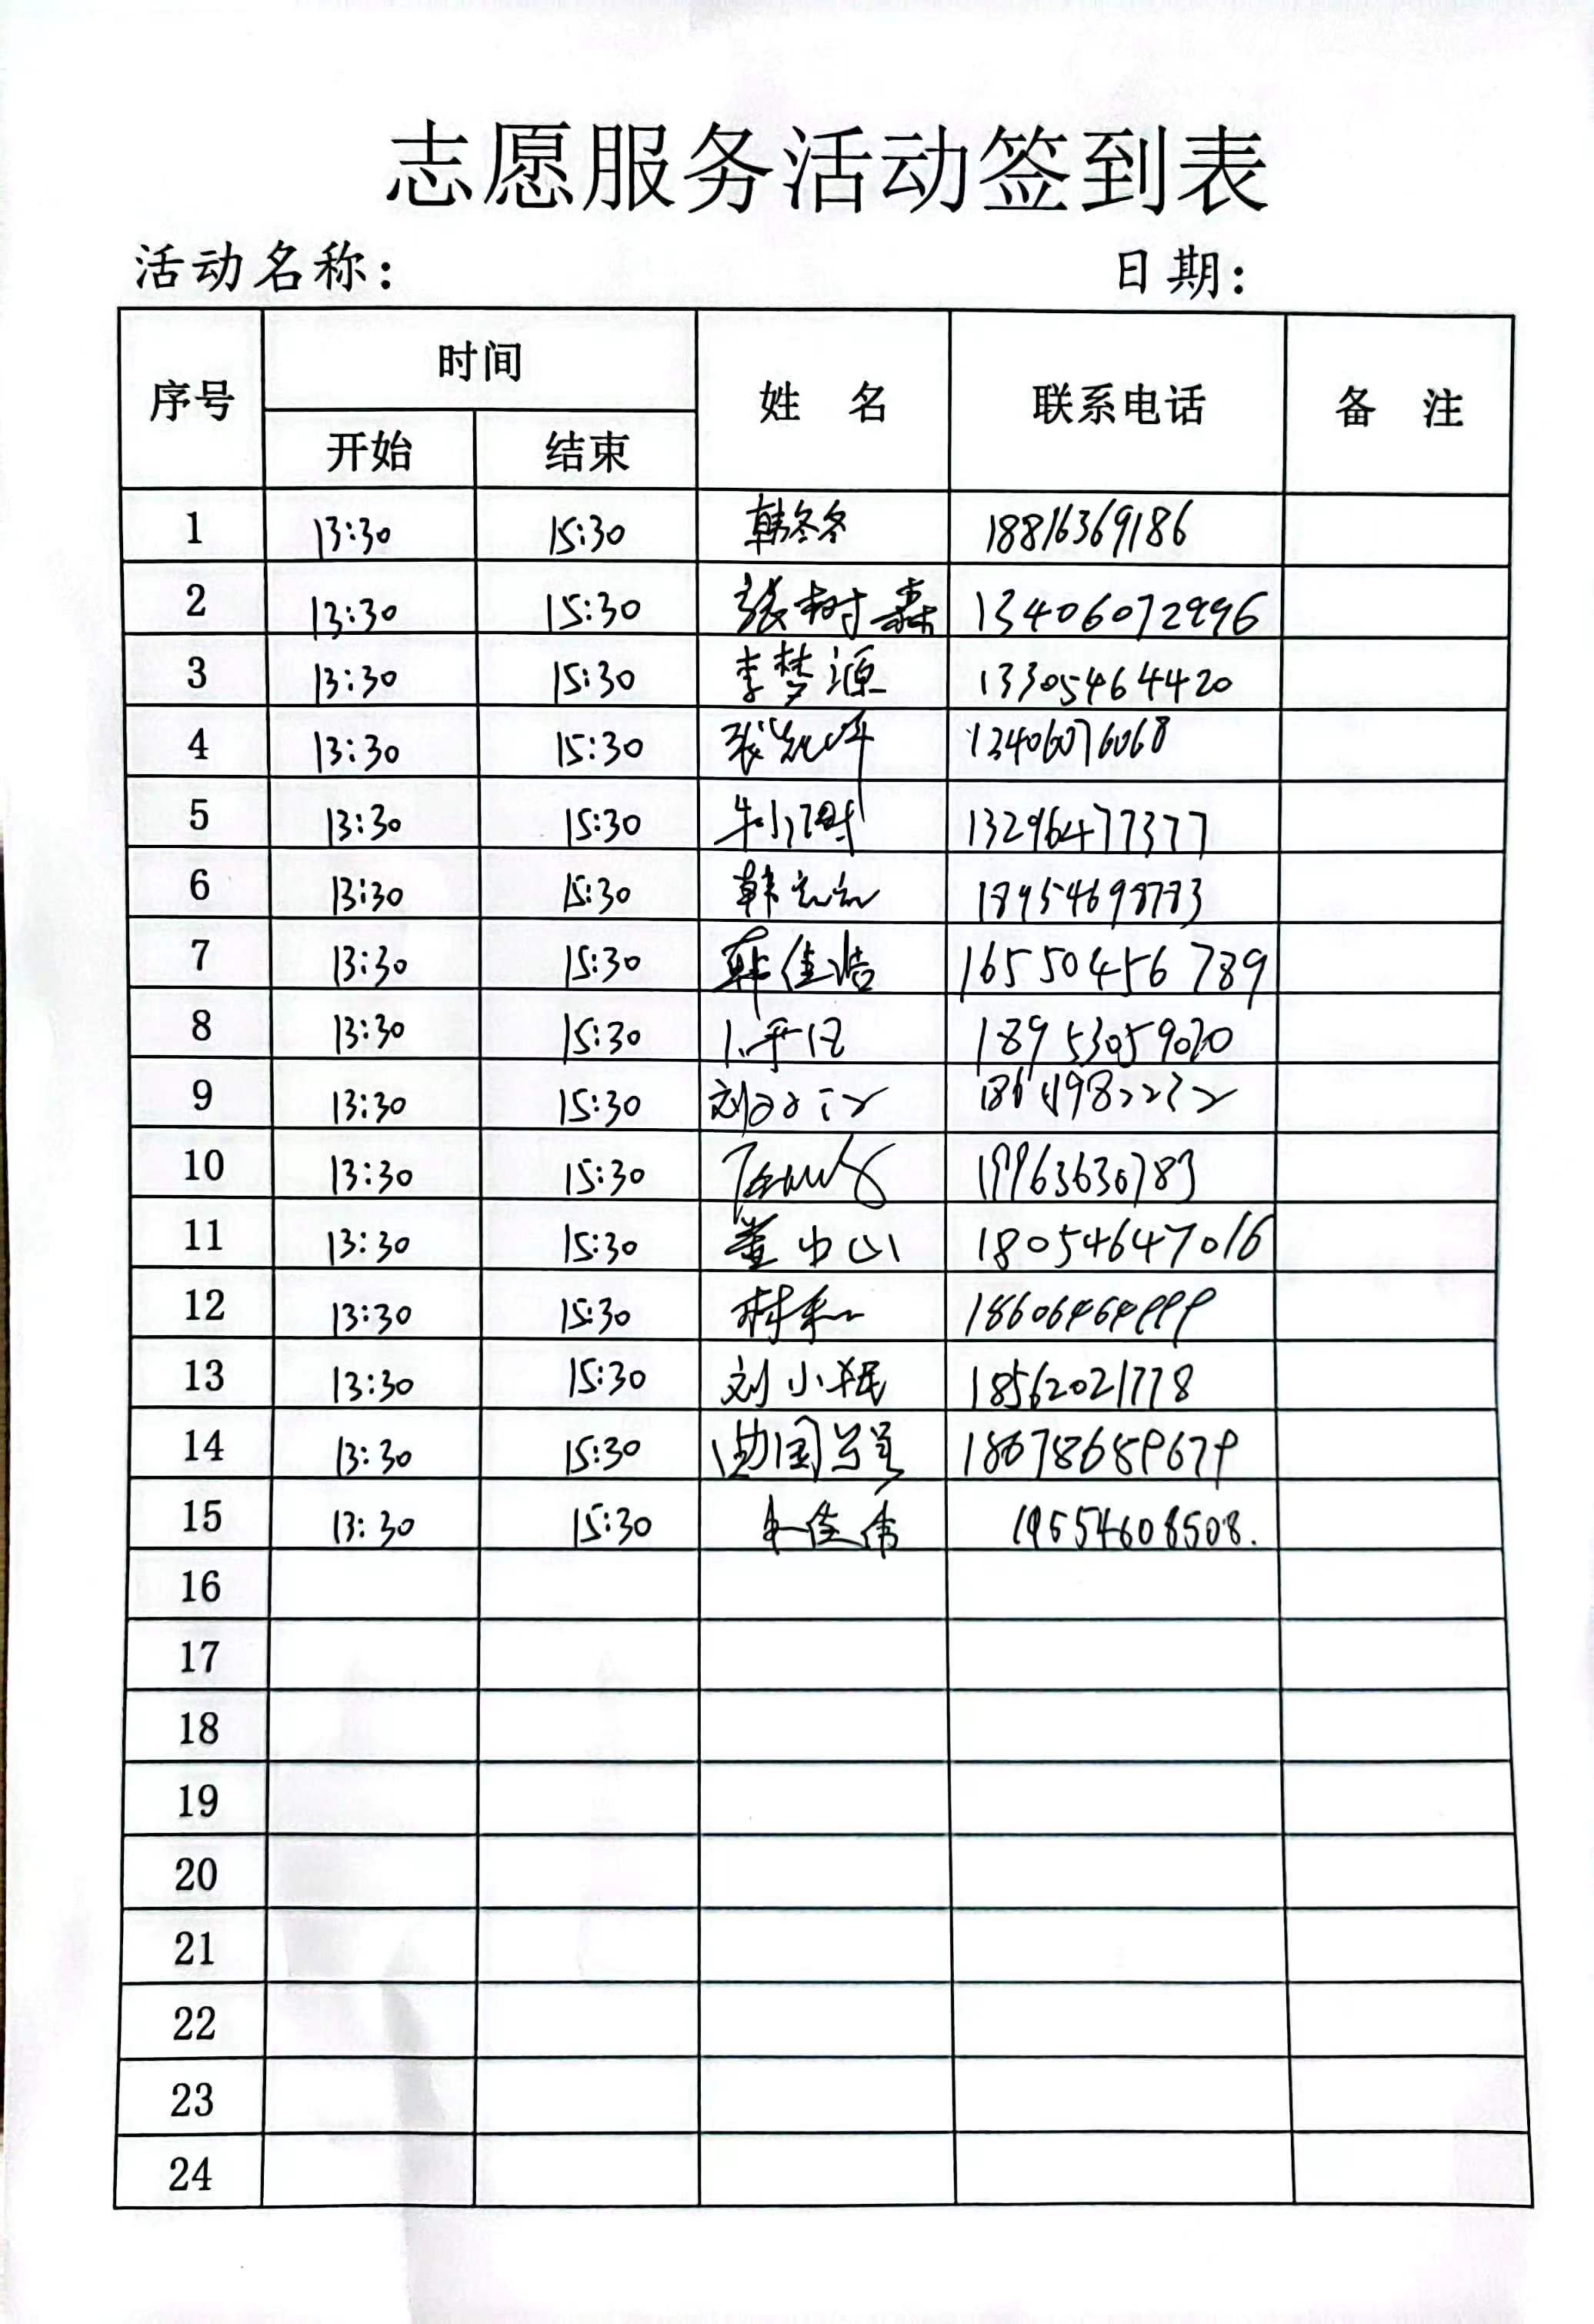 志愿服务活动签到表
活动名称： 日期：
序号 时间 姓 名 联系电话 备 注
开始 结束
1 13:30 15:30 韩冬冬 18816369186
2 13:30 15:30 张树森 13406072996
3 13:30 15:30 李梦源 13305464420
4 13:30 15:30 张 13406076068
5 13:30 15:30 13296477377
6 13:30 15:30 韩 18954698783
7 13:30 15:30 韩佳浩 16550456789
8 13:30 15:30
9 13:30 15:30 刘
10 13:30 15:30 19963630783
11 13:30 15:30 董中山 18054647016
12 13:30 15:30
13 13:30 15:30 刘小 18562021778
14 13:30 15:30 国 18678689679
15 13:30 15:30 佳伟 19554608508.
16
17
18
19
20
21
22
23
24